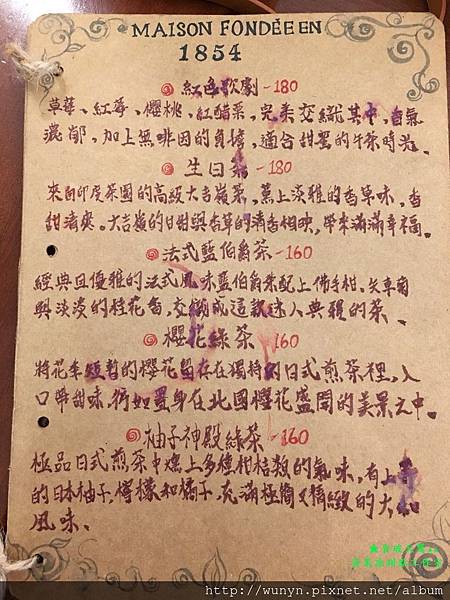 MAISON FONDÉE EN
1854
紅色歌劇-180
草莓、紅莓、櫻桃、紅醋栗，完美交織其中，香氣
濃郁，加上無咖因的負擔，適合甜蜜的午茶時光。
生日茶-180
來自印度茶園的高級大吉嶺茶，薰上淡雅的香草味，香
甜清爽。大吉嶺的甘甜與香草的清香相映，帶來滿滿幸福。
法式藍伯爵茶-160
經典且優雅的法式風味藍伯爵茶配上佛手柑、矢車菊
與淡淡的桂花香，交織成這款迷人典雅的茶。
櫻花綠茶-160
將花季短暫的櫻花留存在獨特的日式煎茶裡，入
口帶甜味，彷如置身在北國櫻花盛開的美景之中。
柚子神殿綠茶-160
極品日式煎茶中燻上多種柑桔類的氣味，有上等
的日本柚子、檸檬和橘子，充滿極簡又精緻的大和
風味。
http://wunyn.pixnet.net/album